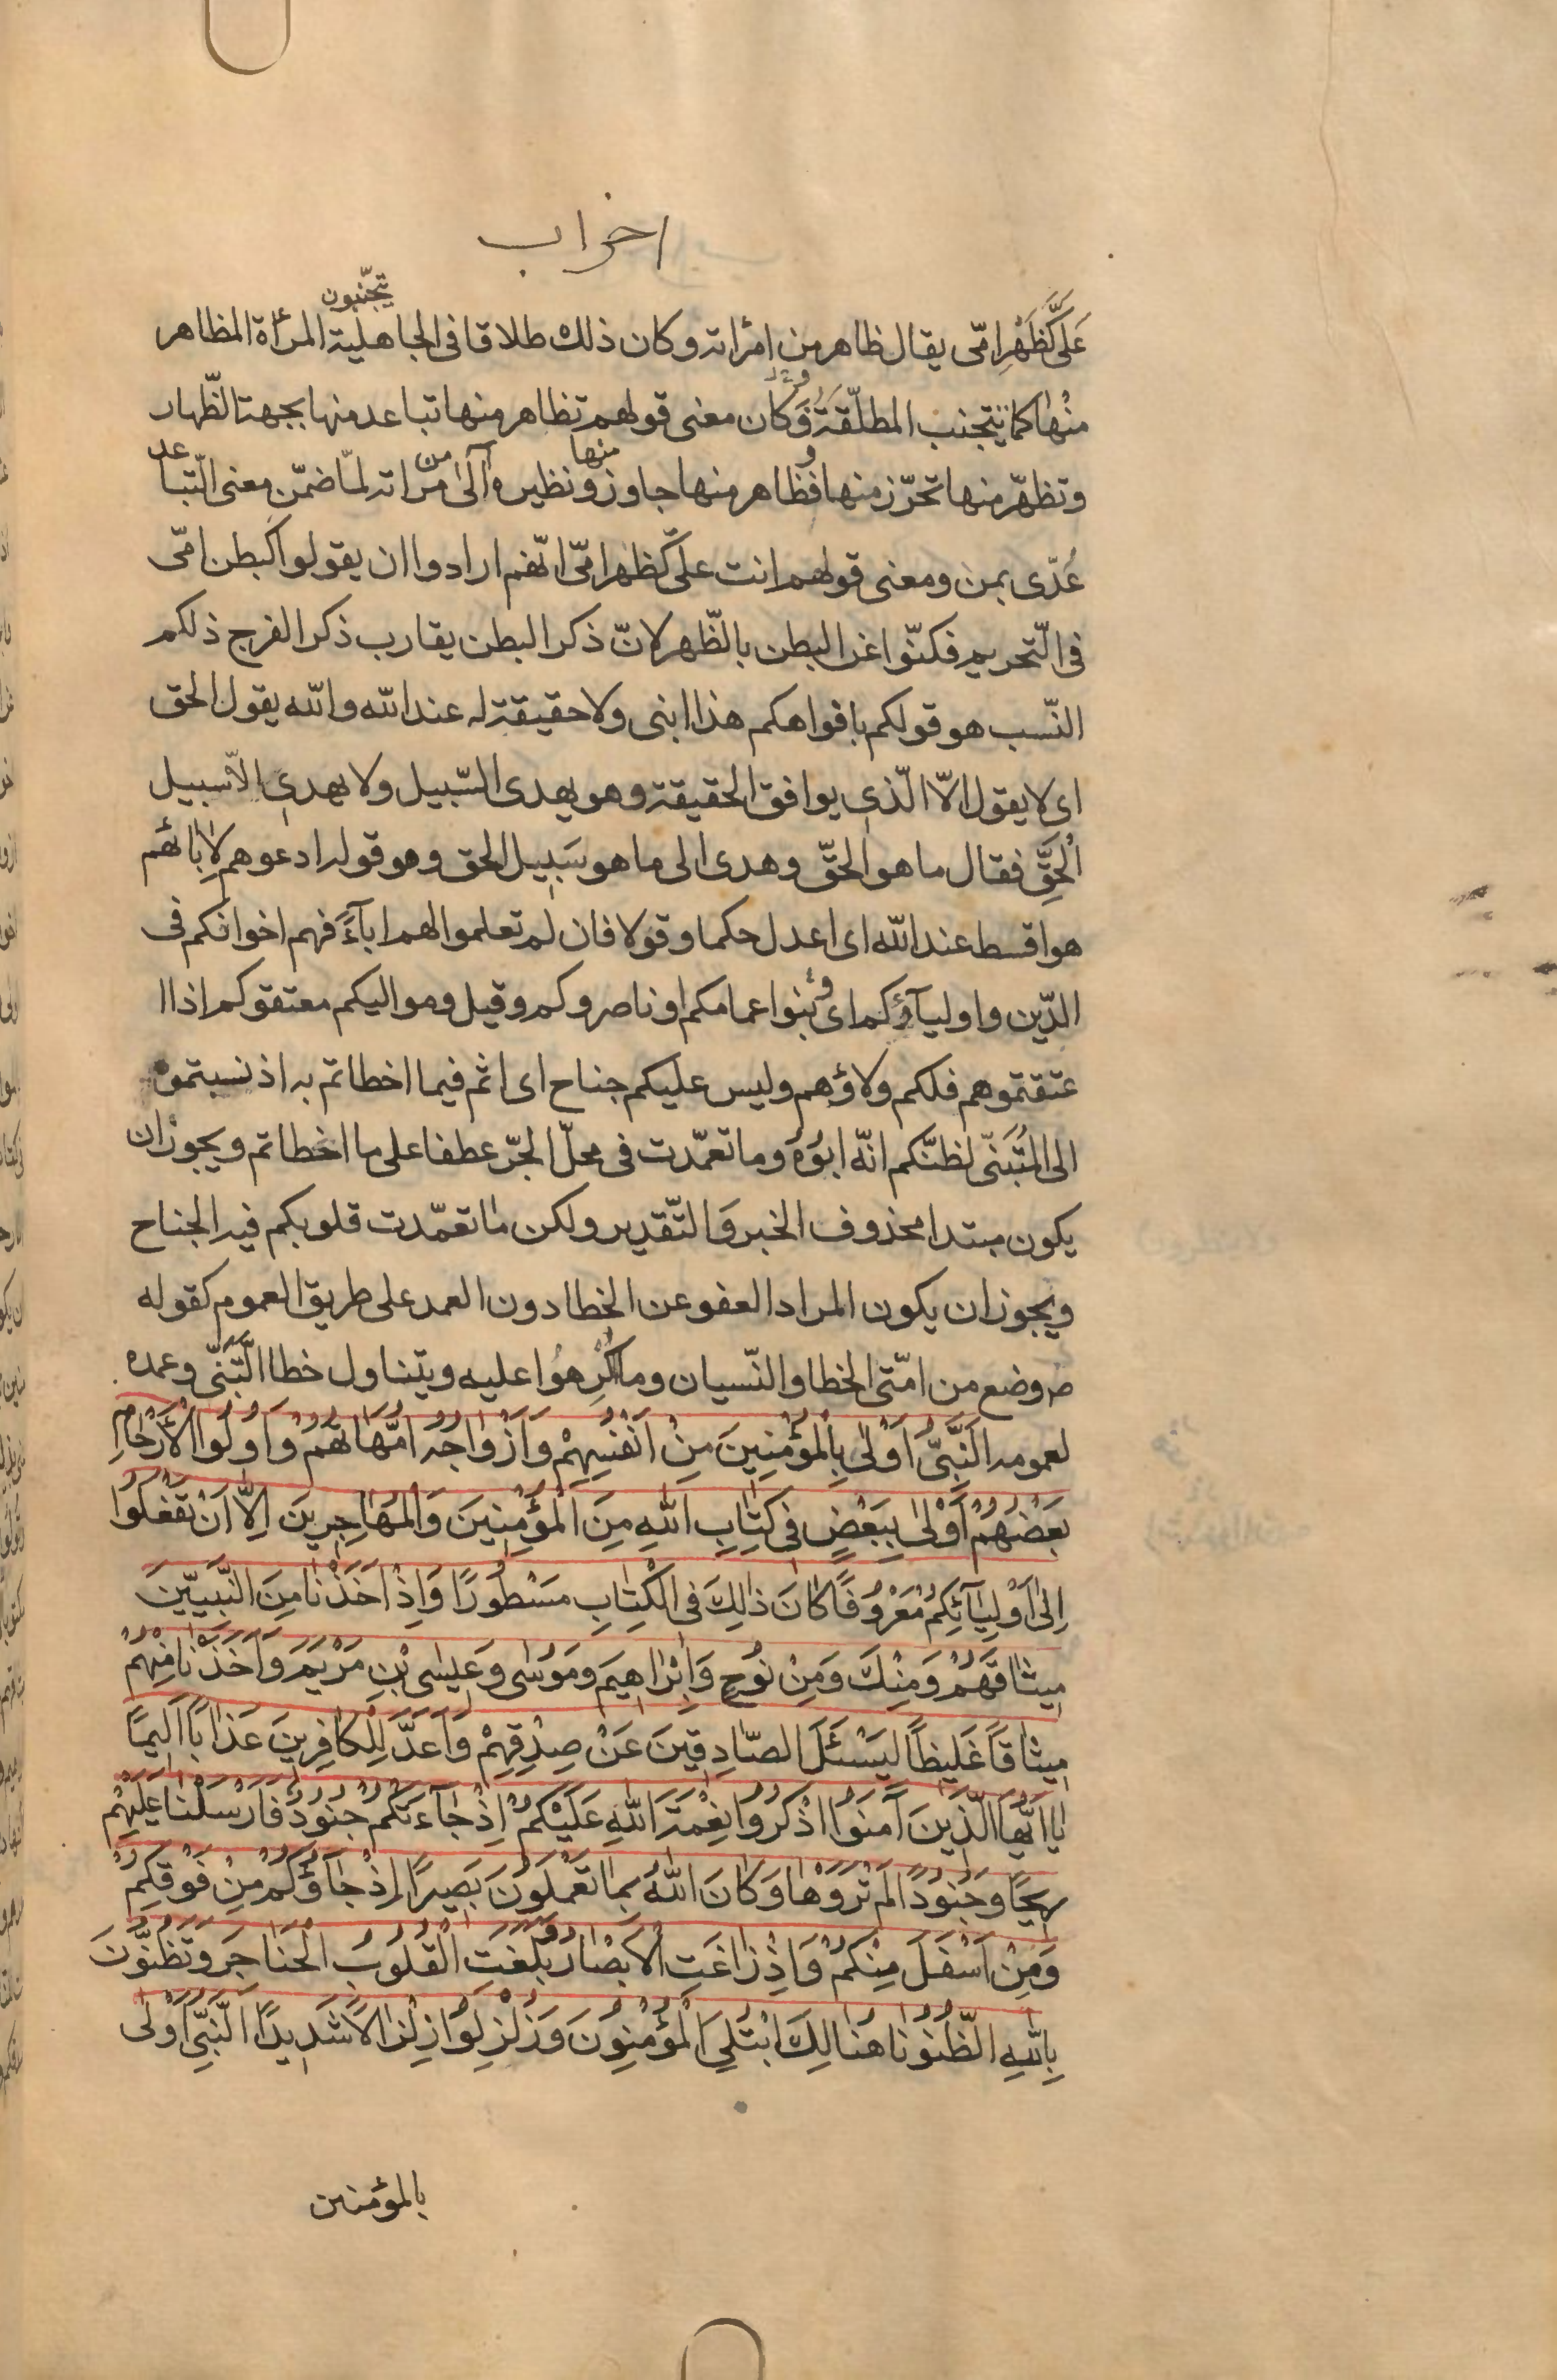 احزاب
عَلَىَّ كَظَهْرِ امّى يقال ظاهر من امرٔاته وكان ذلك طلاقا فى الجاهلية يتجنّبون المرٔاة المظاهر
منْها كما يتجنب المطلّقة وَكان معنى قولهم تظاهر منها تباعد منها بجهة الظّهار
وتظهّر منها تحرّز منها وظاهر منها جاوز منها ونظيره آلى من مرٔاته لمّا ضمّن معنى التّباعد
عُدّى بمن ومعنى قولهم انت علىّ كظهر امّى انّهم ارادوا ان يقولوا كبطن امّى
فى التّحريم فكنّوا عن البطن بالظّهر لانّ ذكر البطن يقارب ذكر الفرج ذلكم
النّسب هو قولكم بافواهكم هذا ابنى ولا حقيقة له عند الله والله يقول الحق
اى لا يقول الّا الّذى يوافق الحقيقة وهو يهدى السّبيل ولا يهدى الّا سبيل
الْحَقِّ فقال ما هو الحقّ وهدى الى ما هو سَبيل الحق وهو قوله ادعوهم لِاٰبائهم
هو اقسط عند الله اى اعدل حكما وقولا فان لم تعلموا لهم اباۤءً فهم اخوانكم فى
الدّين واولياۤؤكم اى وبنوا عمامكم او ناصروكم وقيل ومواليكم معتقوكم اذا ا
عتقتموهم فلكم ولاؤهم وليس عليكم جناح اى اثم فيما اخطاتم به اذ نسبتموه
الى المُتَبَنّى لظنّكم انّه ابُوهُ وما تعمّدت فى محلّ الجّر عطفا على ما اخطاتم ويجوز ان
يكون مبتدا محذوف الخبر وَالتّقدير ولكن ما تعمّدت قلوبكم فيه الجناح
ويجوز ان يكون المراد العفو عن الخطا دون العمد على طريق العموم كقوله
ص وضع من امّتى الخطا والنّسيان وما اُكْرِهُوا عليه ويتناول خطا التَّبَنّى وعمده
لعمومه اَلنَّبِىُّ اَوْلٰى بِالْمُؤْمِنِينَ مِنْ اَنْفُسِهِمْ وَاَزْوٰاجُهُ اُمَّهٰاتُهُمْ وَاُولُوا الْأَرْحٰامِ
بَعْضُهُمْ اَوْلٰى بِبَعْضٍ فى كِتٰابِ اللهِ مِنَ الْمُؤْمِنِينَ وَالْمُهٰاجِرِينَ اِلّٰا اَنْ تَفْعَلُوا
اِلٰى اَوْلِيٰاۤئِكُمْ مَعْرُوفًا كٰانَ ذٰلِكَ فى الْكِتٰابِ مَسْطُورًا وَاِذْ اَخَذْنٰا مِنَ النَّبِيّينَ
مِيثٰاقَهُمْ وَمِنْكَ وَمِنْ نُوحٍ وَاِبْرٰاهِيمَ وَمُوسٰى وَعِيسٰى بْنِ مَرْيَمَ وَاَخَذْنٰا مِنْهُمْ
مِيثٰاقًا غَلِيظًا لِيَسْئَلَ الصّٰادِقِينَ عَنْ صِدْقِهِمْ وَاَعَدَّ لِلْكٰافِرِينَ عَذٰابًا اَلِيمًا
يٰا اَيُّهَا الَّذِينَ آمَنُوا اذْكُرُوا نِعْمَةَ اللهِ عَلَيْكُمْ اِذْ جٰاۤءَتْكُمْ جُنُودٌ فَاَرْسَلْنٰا عَلَيْهِمْ
رِيحًا وَجُنُودًا لَمْ تَرَوْهٰا وَكٰانَ اللهُ بِمٰا تَعْمَلُونَ بَصِيرًا اِذْ جٰاۤؤُكُمْ مِنْ فَوْقِكُمْ
وَمِنْ اَسْفَلَ مِنْكُمْ وَاِذْ زٰاغَتِ الْاَبْصٰارُ وَبَلَغَتِ الْقُلُوبُ الْحَنٰاجِرَ وَتَظُنُّونَ
بِاللهِ الظُّنُونٰا هُنٰالِكَ ابْتُلِىَ الْمُؤْمِنُونَ وَزُلْزِلُوا زِلْزٰالًا شَدِيدًا اَلنَّبِىُّ اَوْلٰى
بالمؤمنين